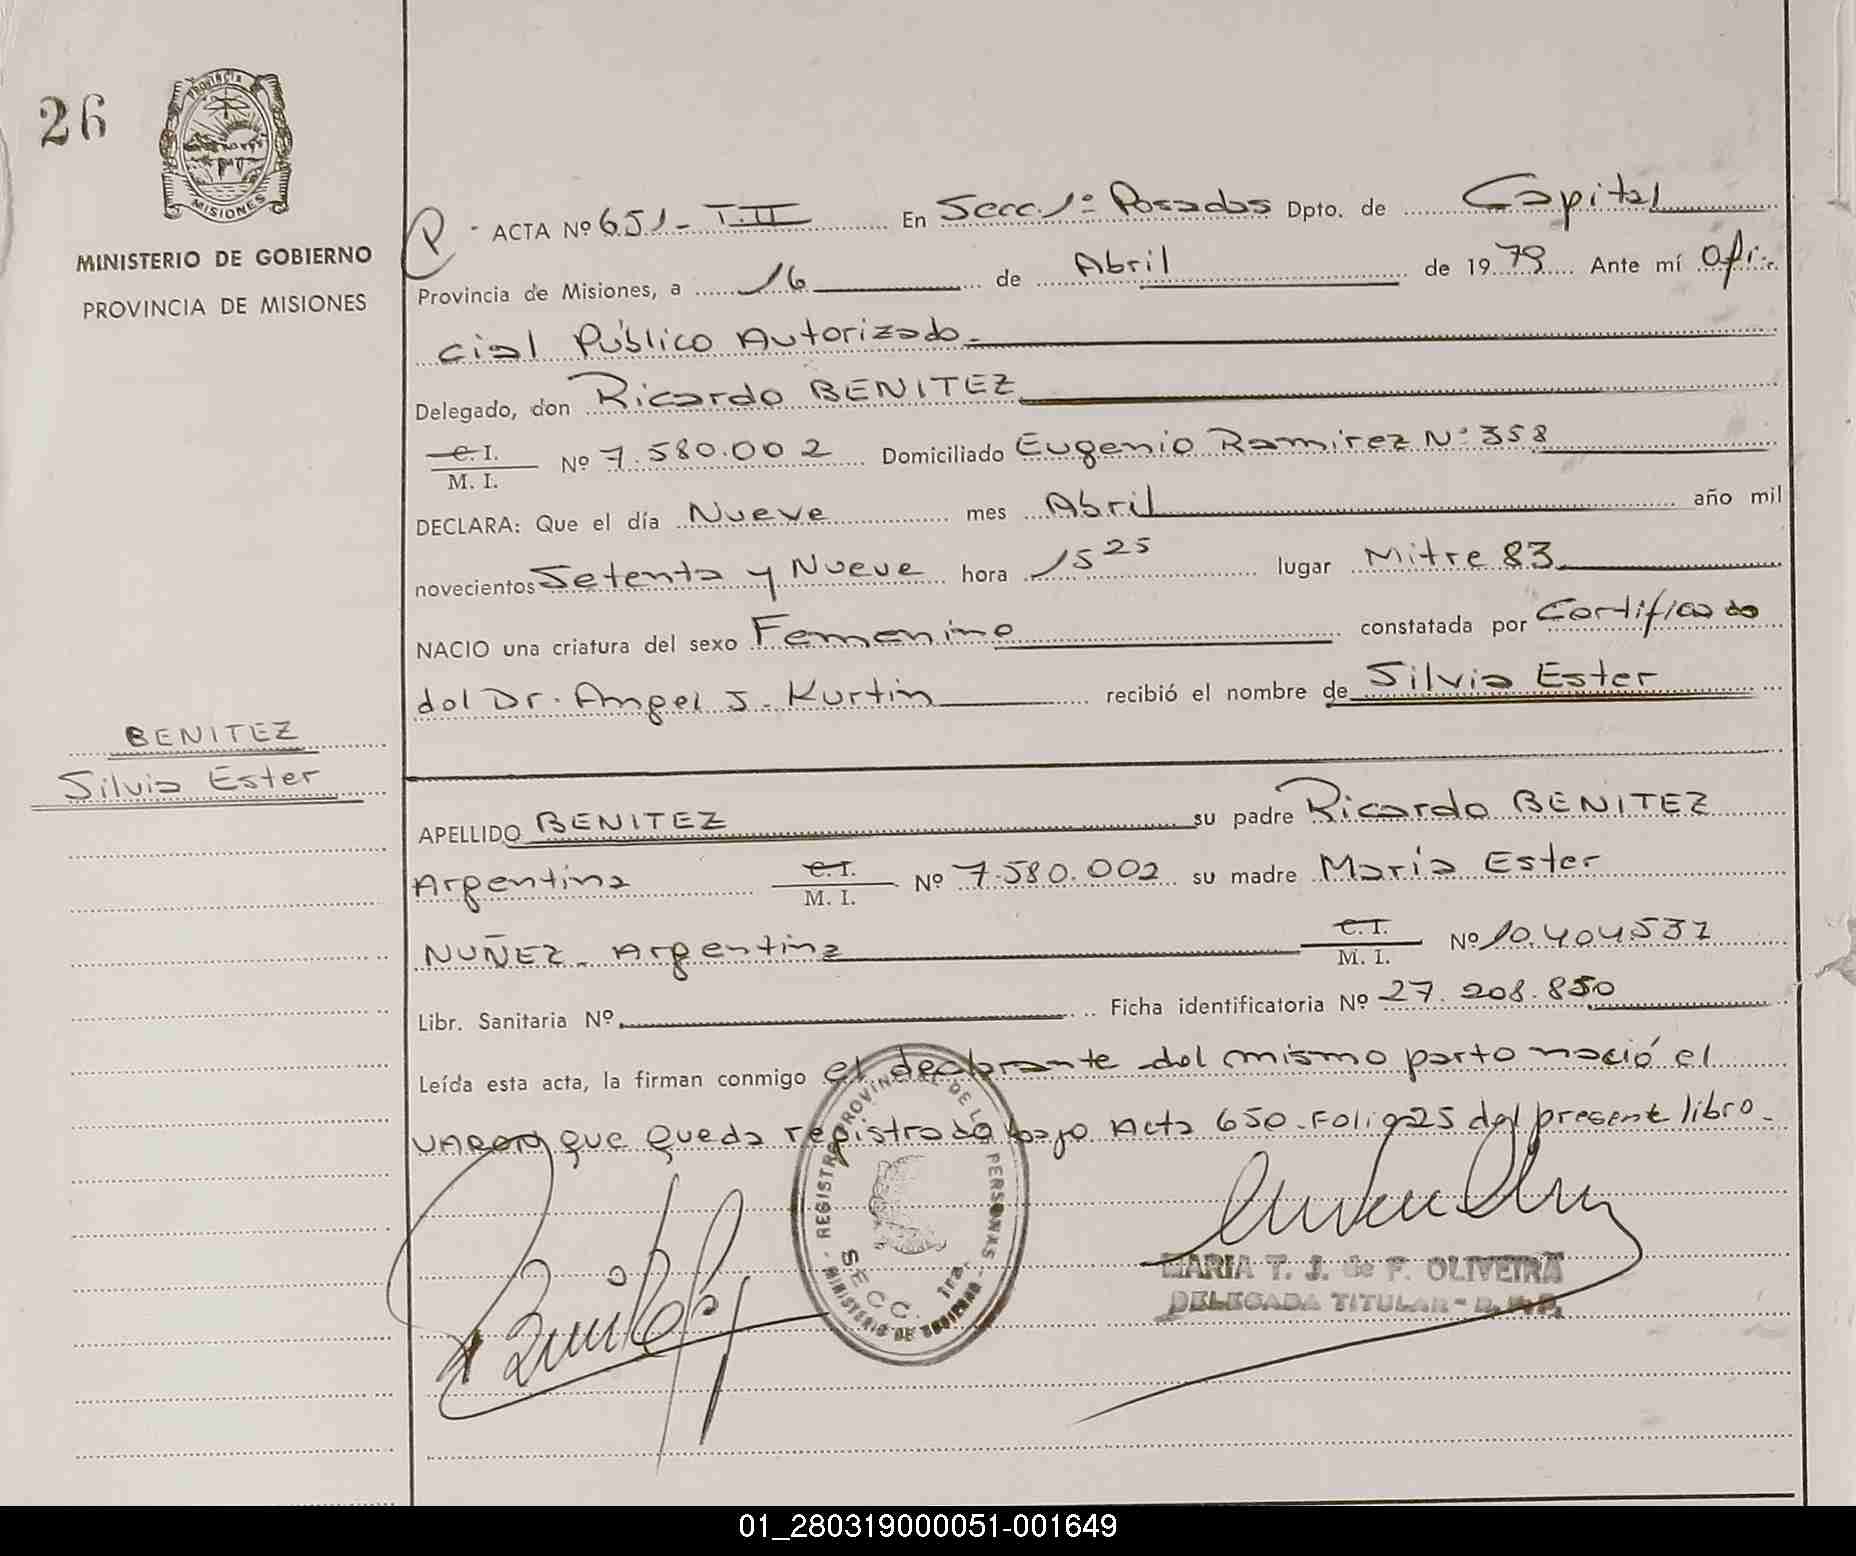 26
PROVINCIA
MISIONES
MINISTERIO DE GOBIERNO
PROVINCIA DE MISIONES
P - ACTA Nº 651 - T.II En Secc. 1º Posadas Dpto. de Capital
Provincia de Misiones, a 16 de Abril de 1979 Ante mí Ofi-
cial Público Autorizado.
Delegado, don Ricardo BENITEZ
C. I.
M. I. Nº 7.580.002 Domiciliado Eugenio Ramirez Nº 358
DECLARA: Que el día Nueve mes Abril año mil
novecientos Setenta y Nueve hora 15 25 lugar Mitre 83
NACIO una criatura del sexo Femenino constatada por Certificado
del Dr. Angel J. Kurtin recibió el nombre de Silvia Ester
BENITEZ
Silvia Ester
APELLIDO BENITEZ su padre Ricardo BENITEZ
Argentina C. I.
M. I. Nº 7.580.002 su madre María Ester
NUÑEZ - Argentina C. I.
M. I. Nº 10.404.537
Libr. Sanitaria Nº Ficha identificatoria Nº 27.208.850
Leída esta acta, la firman conmigo el declarante del mismo parto nació el
VARON que queda registrado bajo Acta 650 - Folio 25 del presente libro -
REGISTRO PROVINCIAL DE LAS PERSONAS
SECC. 1ra.
MINISTERIO DE GOBIERNO
MARIA T. J. de F. OLIVEIRA
DELEGADA TITULAR - R. P. P.
01_280319000051-001649